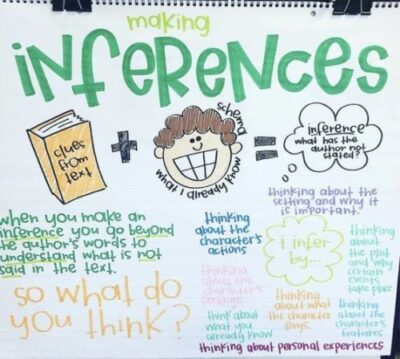 making
inferences
clues
from
text
+
schema
what I already know
=
inference
what has the
author not
stated?
when you make an
inference you go beyond
the author's words to
understand what is not
said in the text.
so what do
you think?
thinking about the
setting and why it
is important.
thinking
about the
character's
actions
i infer
by...
thinking
about
the plot
and why
certain
events
take place
thinking
about the
character's
feelings
thinking
about what
the character
says
thinking
about the
character's
features.
think about
what you
already know
thinking about personal experiences